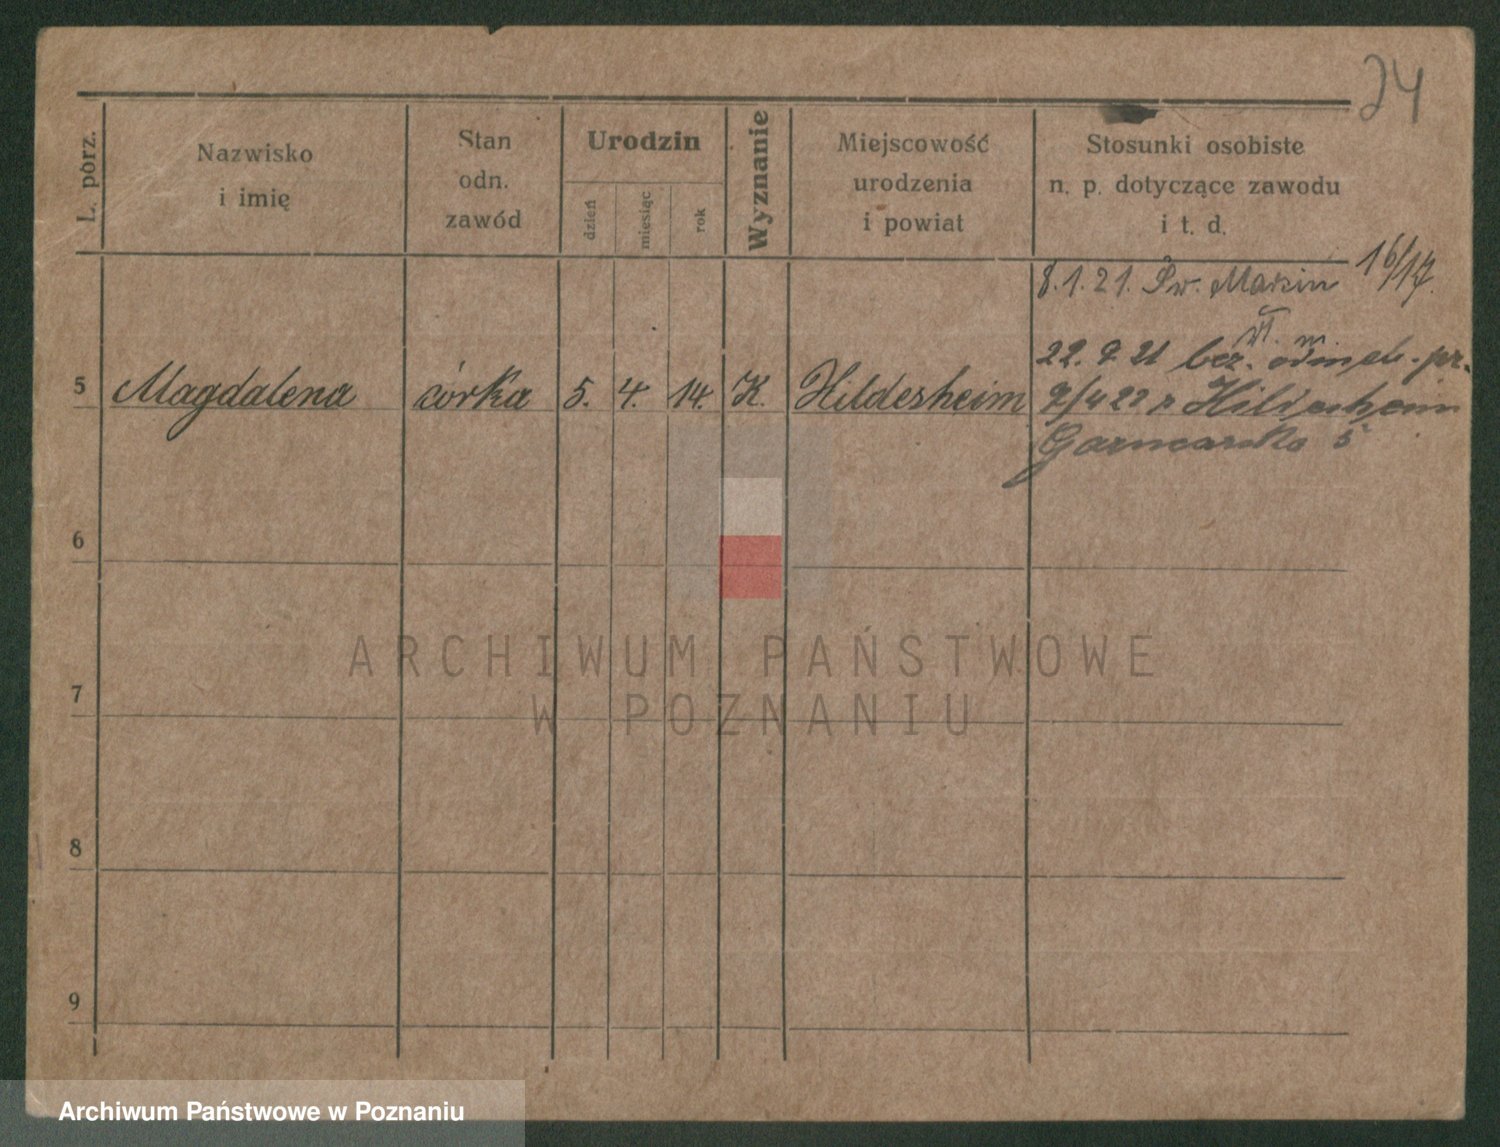 24
L. porz.
Nazwisko
i imię
Stan
odn.
zawód
Urodzin
dzień
miesiąc
rok
Wyznanie
Miejscowość
urodzenia
i powiat
Stosunki osobiste
n. p. dotyczące zawodu
i t. d.
8.1.21. Św. Marcin 16/17.
22. 9 21 bez.
5 Magdalena córka 5. 4. 14. K. Hildesheim
9/4 22 z Hildesheim
Garncarska 5
6
7
8
9
ARCHIWUM PAŃSTWOWE
W POZNANIU
Archiwum Państwowe w Poznaniu